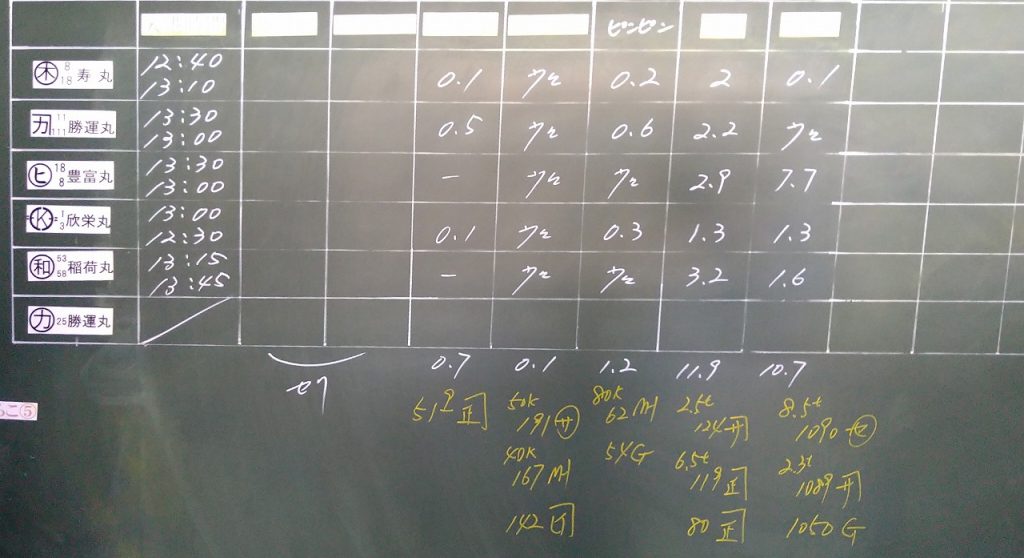 ピンピン
木 8 18 寿丸 12:40 13:10 0.1 ウセ 0.2 2 0.1
カ 11 111 勝運丸 13:30 13:00 0.5 ウセ 0.6 2.2 ウセ
ヒ 18 8 豊富丸 13:30 13:00 – ウセ ウセ 2.9 7.7
K 1 3 欣栄丸 13:00 12:30 0.1 ウセ 0.3 1.3 1.3
和 53 58 稲荷丸 13:15 13:45 – ウセ ウセ 3.2 1.6
カ 25 勝運丸
0.7 0.1 1.2 11.9 10.7
50K 80K 2.5t 8.5t
519 正 191 サ 62 M 124 1090 セ
40K 54G 6.5t 2.3t
167 M 119 正 1089
142 80 正 1050 G
こ⑤